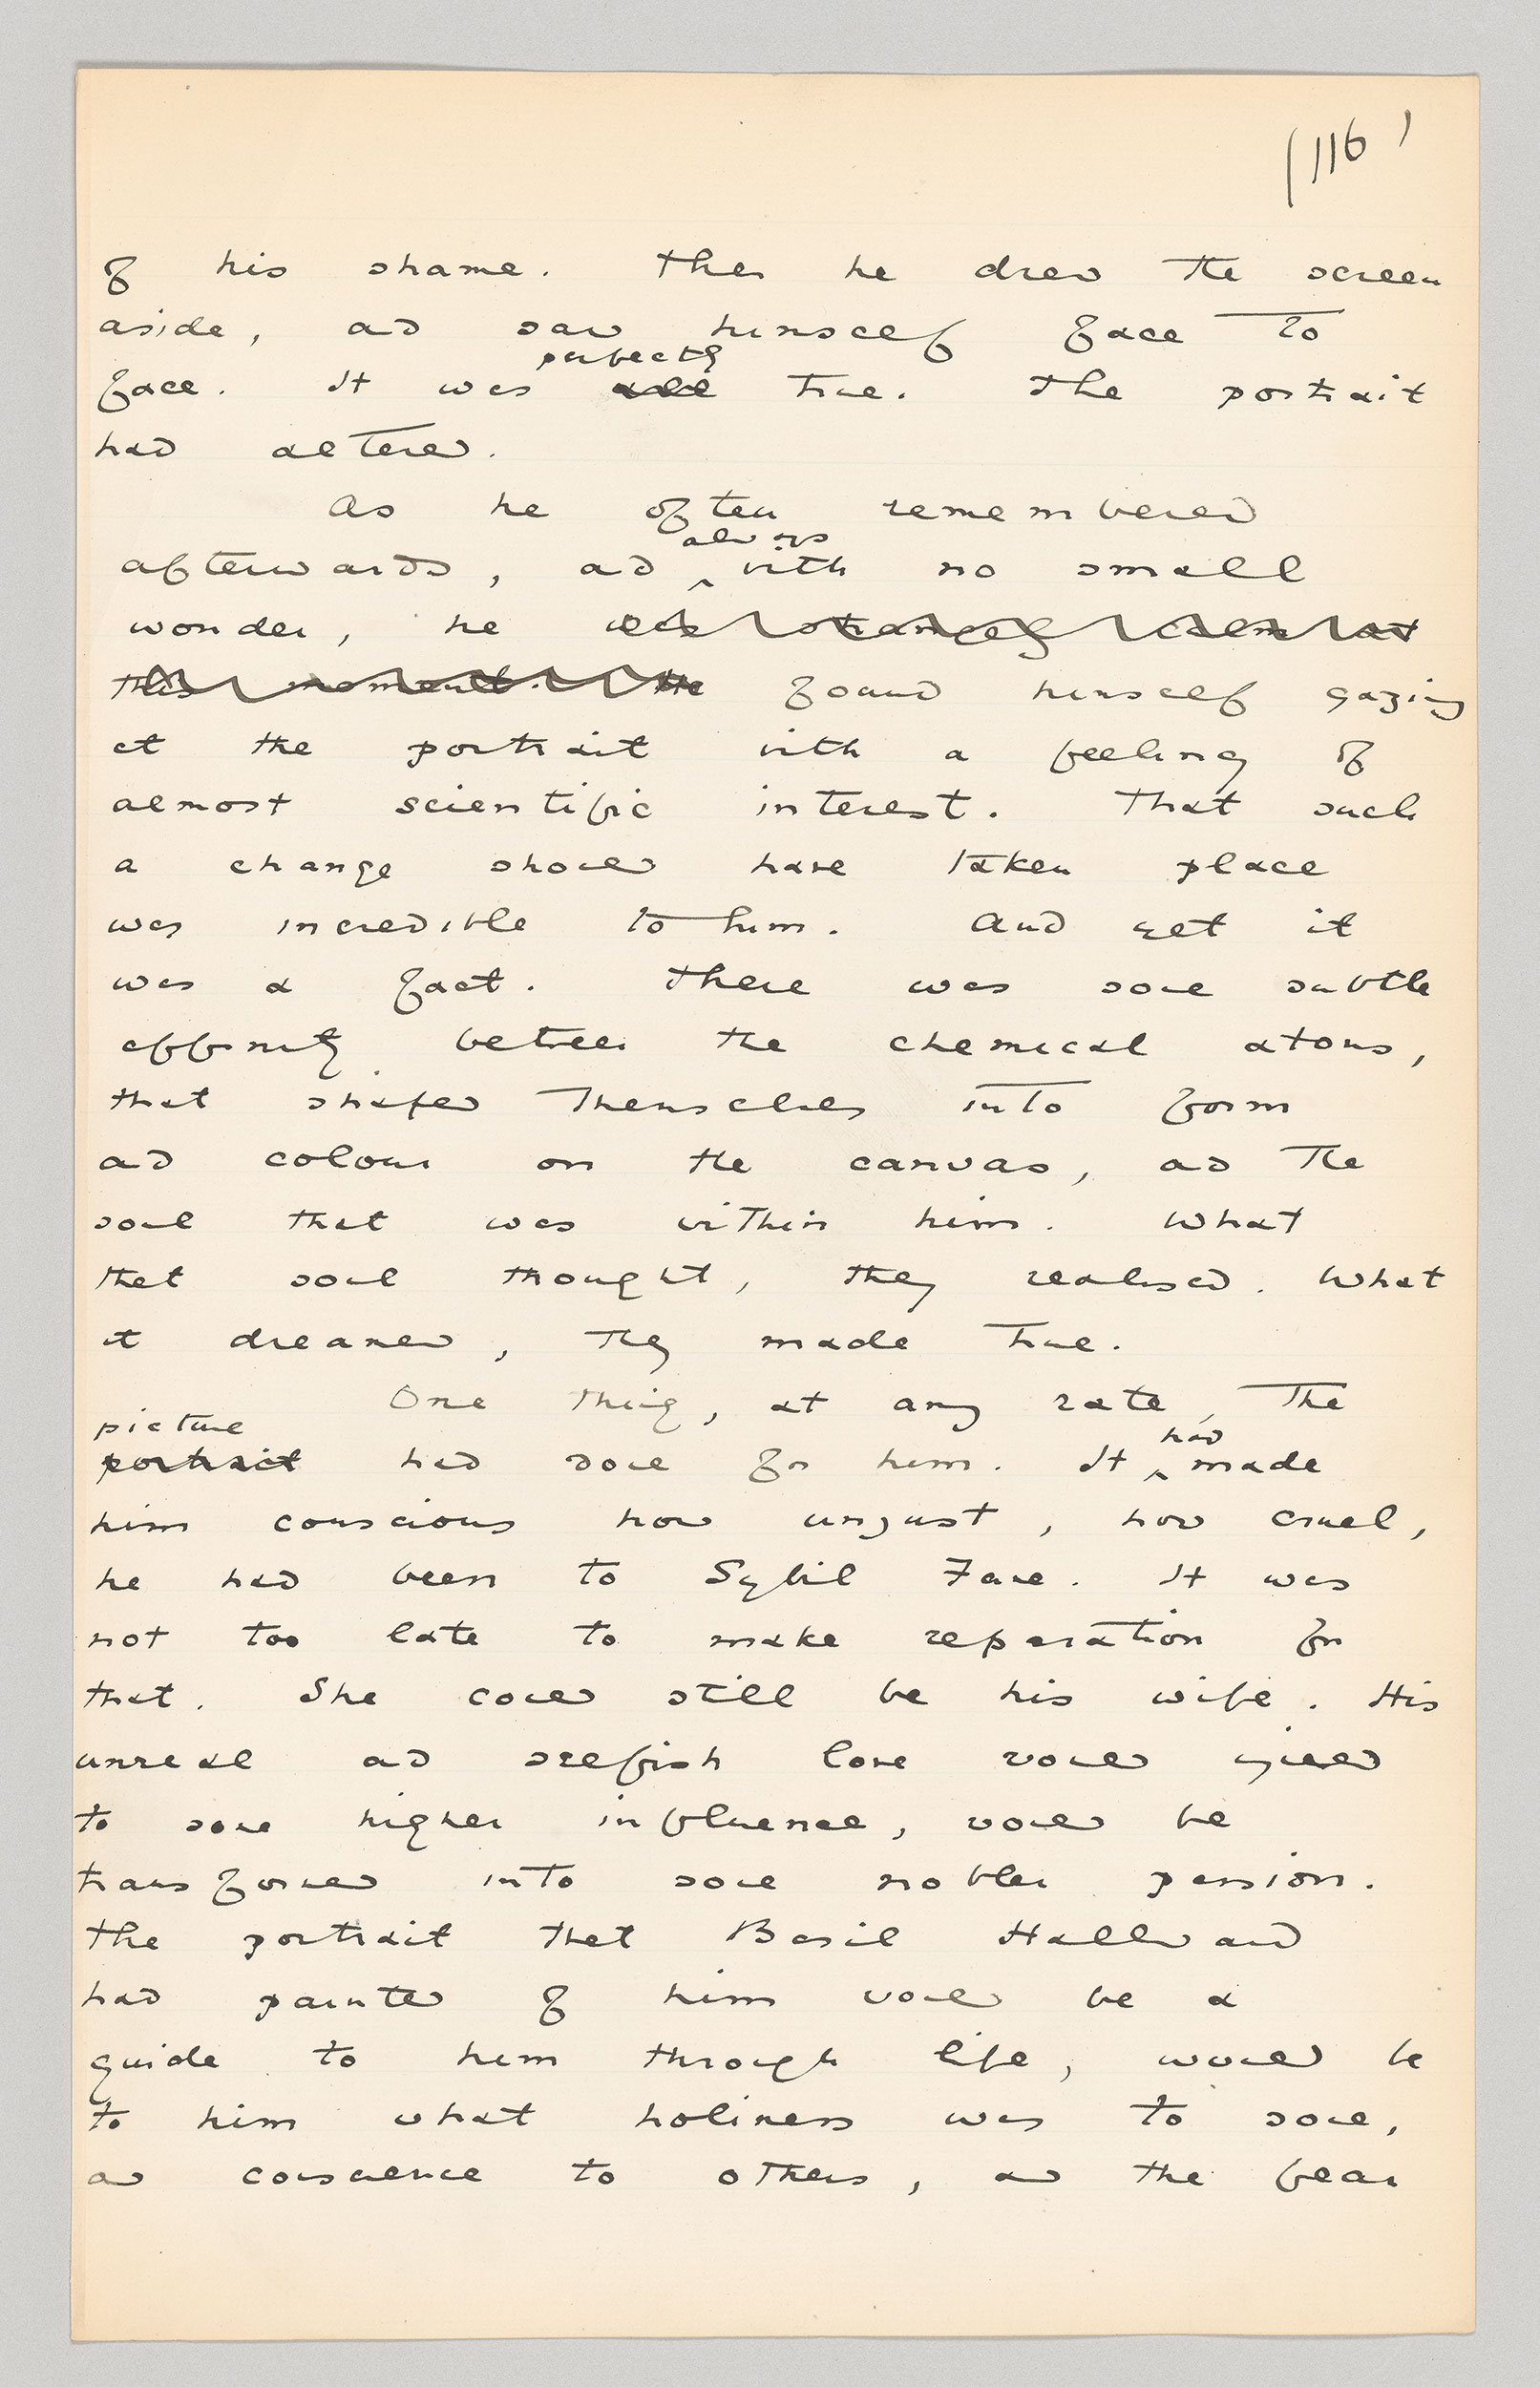 (116)
of his shame. Then he drew the screen
aside, and saw himself face to
perfectly
face. It was all true. The portrait
had altered.
As he often remembered
always
afterwards, and ^ with no small
wonder, he was strangely calm at
this moment. He found himself gazing
at the portrait with a feeling of
almost scientific interest. That such
a change should have taken place
was incredible to him. And yet it
was a fact. There was some subtle
affinity between the chemical atoms,
that shaped themselves into form
and colour on the canvas, and the
soul that was within him. What
that soul thought, they realised. What
it dreamed, they made true.
One thing, at any rate, the
picture
had
portrait had done for him. It ^ made
him conscious how unjust, how cruel,
he had been to Sybil Fane. It was
not too late to make reparation for
that. She could still be his wife. His
unreal and selfish love would yield
to some higher influence, would be
transformed into some nobler passion.
The portrait that Basil Hallward
had painted of him would be a
guide to him through life, would be
to him what holiness was to some,
and conscience to others, and the fear